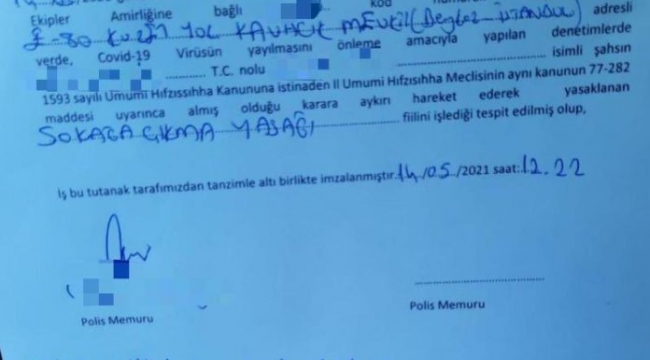 Ekipler Amirliğine bağlı kod
E-80 KUZEY YOL KAVACIK MEVKİİ (Beykoz-İSTANBUL) adresli
verde, Covid-19 Virüsün yayılmasını önleme amacıyla yapılan denetimlerde
T.C. nolu isimli şahsın
1593 sayılı Umumi Hıfzıssıhha Kanununa istinaden İl Umumi Hıfzısıhha Meclisinin aynı kanunun 77-282
maddesi uyarınca almış olduğu karara aykırı hareket ederek yasaklanan
SOKAĞA ÇIKMA YASAĞI fiilini işlediği tespit edilmiş olup,
İş bu tutanak tarafımızdan tanzimle altı birlikte imzalanmıştır. 14/05/2021 saat:12.22
Polis Memuru Polis Memuru